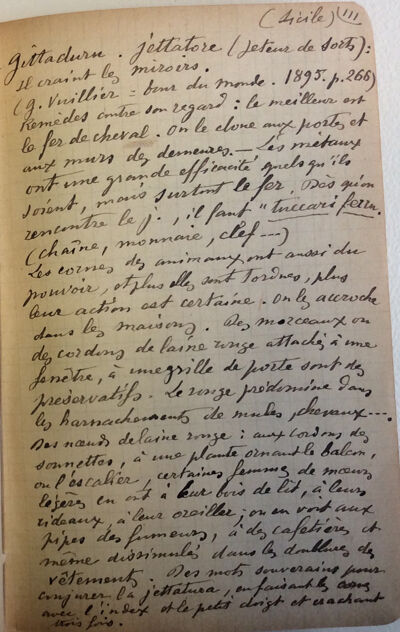 (Sicile) III
gittaduru. jettatore (jeteur de sorts):
Il craint les miroirs.
(G. Vuillier = Tour du monde. 1895. p. 266)
Remèdes contre son regard : le meilleur est
le fer de cheval. On le cloue aux portes et
aux murs des demeures. — Les métaux
ont une grande efficacité quels qu'ils
soient, mais surtout le fer. Dès qu'on
rencontre le j., il faut "tuccari ferru.
(chaîne, monnaie, clef ---)
Les cornes des animaux ont aussi du
pouvoir, et plus elles sont tordues, plus
leur action est certaine. On les accroche
dans les maisons. Des morceaux ou
des cordons de laine rouge attachés à une
fenêtre, à une grille de porte sont des
préservatifs. Le rouge prédomine dans
les harnachements de mules, chevaux ---.
Des nœuds de laine rouge : aux cordons des
sonnettes, à une plante ornant le balcon,
ou l'escalier, certaines femmes de mœurs
légères en ont à leur bois de lit, à leurs
rideaux, à leur oreiller ; on en voit aux
pipes des fumeurs, à des cafetières et
même dissimulés dans les doublures des
vêtements. Des mots souverains pour
conjurer la jettatura, en faisant les cornes
avec l'index et le petit doigt et crachant
trois fois.